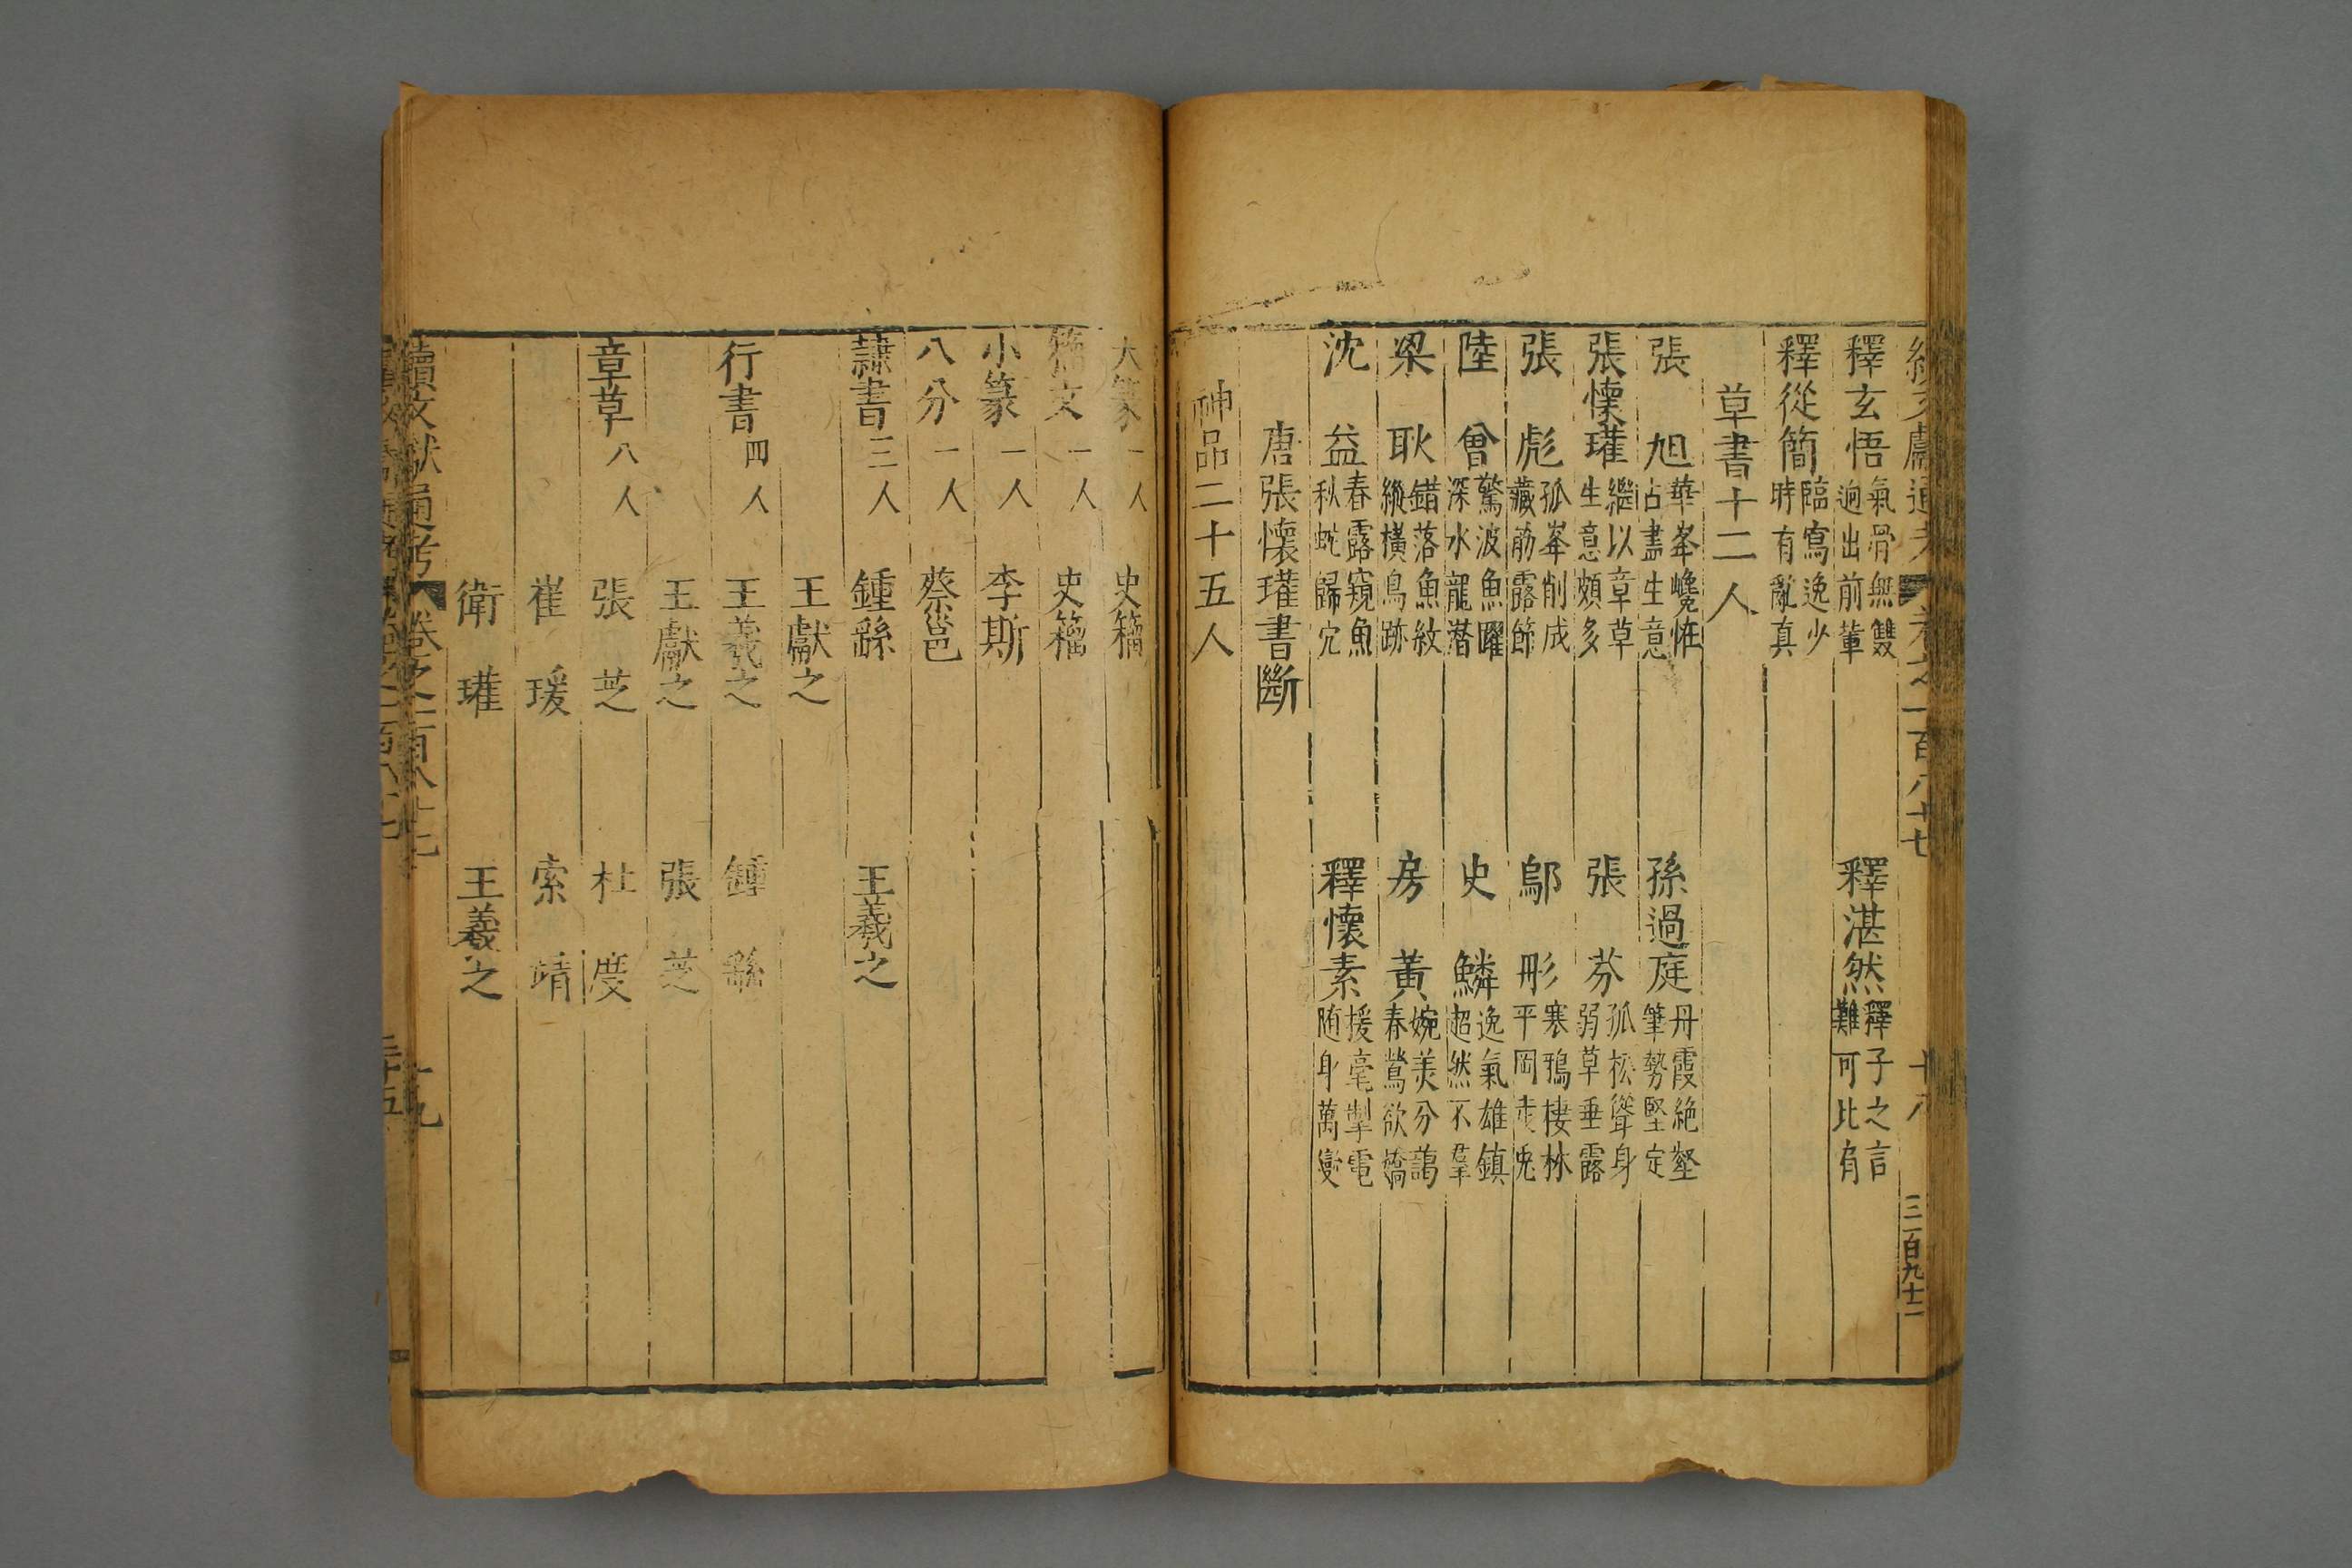 續文獻通考 卷之一百八十七 十八 三百九十二
釋玄悟氣骨無雙迥出前輩 釋湛然釋子之言難可比肩
釋從簡臨寫逸少時有亂真
草書十二人
張旭華峯巉嵯占畫生意 孫過庭丹霞絶壑筆勢堅定
張懷瓘繼以章草生意頗多 張芬孤松聳身弱草垂露
張彪孤峯削成藏筋露節 鄔彤寒鵶棲林平岡走兎
陸曾驚波魚躍深水龍潛 史鱗逸氣雄鎮超然不羣
梁耿錯落魚紋縱橫鳥跡 房黃婉羙分藹春鶯欲嬌
沈益春露窺魚秋蛇歸穴 釋懷素援毫掣電随身萬變
唐張懷瓘書斷
神品二十五人
大篆一人 史籀
籀文一人 史籀
小篆一人 李斯
八分一人 蔡邕
隷書三人 鍾繇 王羲之
王獻之
行書四人 王羲之 鍾繇
王獻之 張芝
章草八人 張芝 杜度
崔瑗 索靖
衛瓘 王羲之
續文獻通考 卷之一百八十七 十九